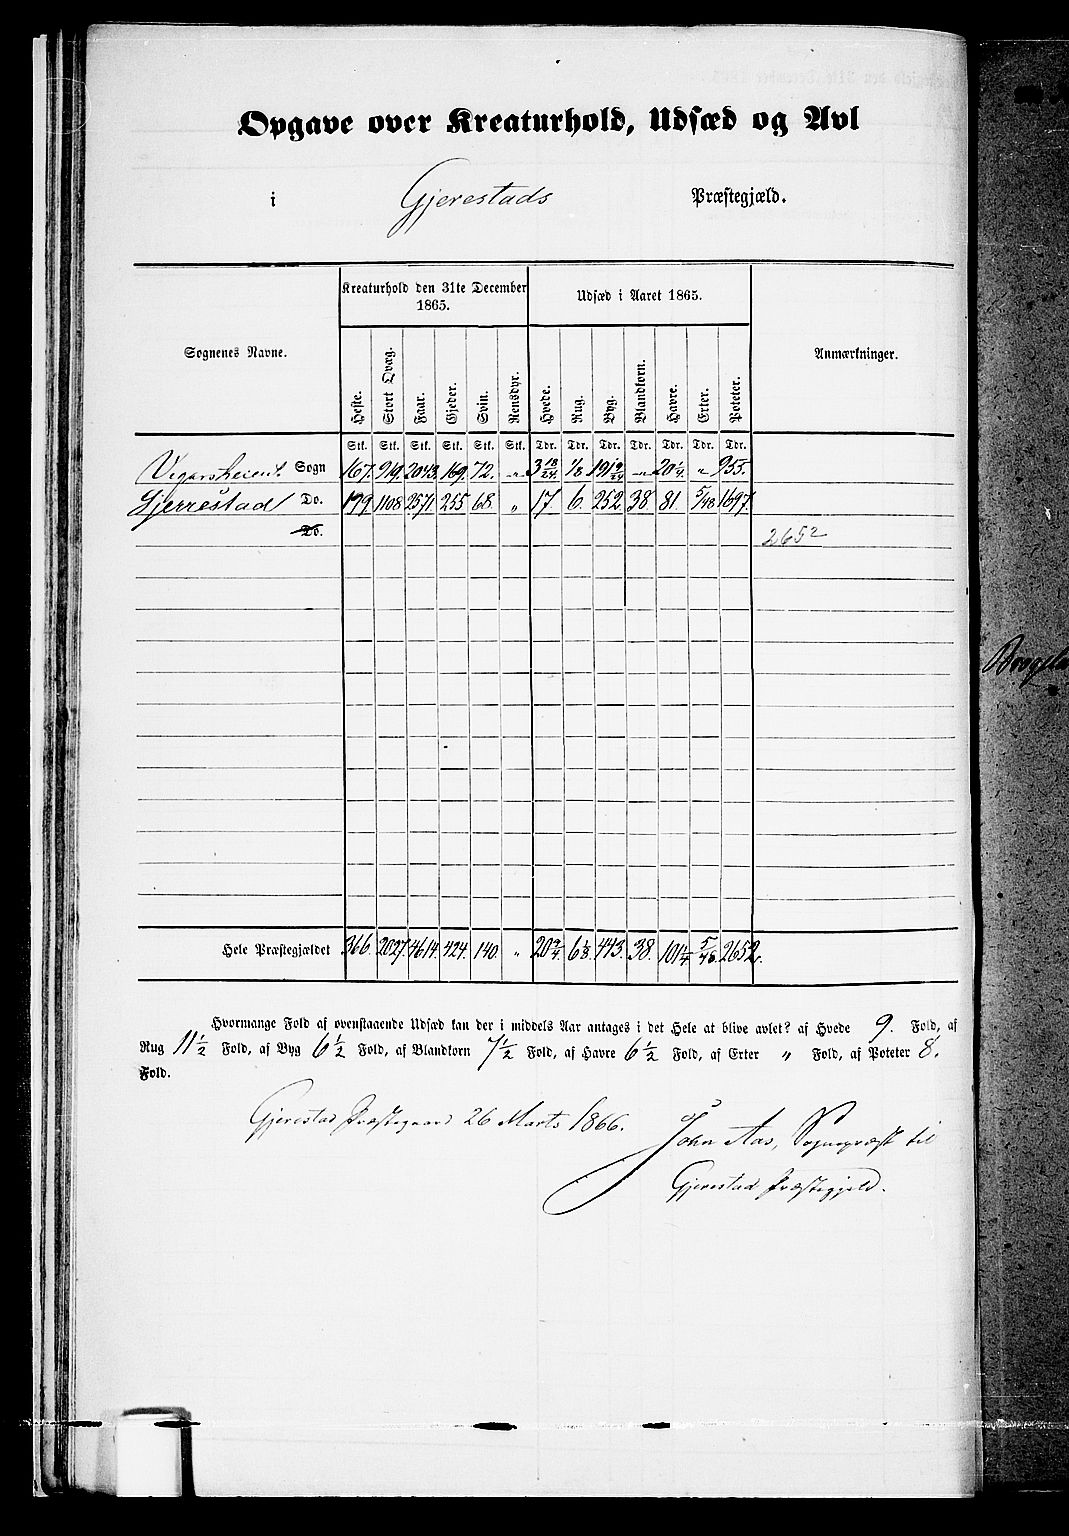 Opgave over Kreaturhold, Udsæd og Avl
i Gjerestads Præstegjæld.
Sognenes Navne. Kreaturhold den 31te December 1865. Udsæd i Aaret 1865. Anmærkninger.
Heste. Stort Qvæg. Faar. Gjeder. Svin. Rensdyr. Hvede. Rug. Byg. Blandkorn. Havre. Erter. Poteter.
Stk. Stk. Stk. Stk. Stk. Stk. Tdr. Tdr. Tdr. Tdr. Tdr. Tdr. Tdr.
Sogn 167. 919. 2043. 169. 72. „ 3 18/24 1/8 191 9/24 „ 20 1/4. „ 955.
Gjerrestad Do. 199 1108 2571. 255 68. „ 17. 6. 252 38. 81. 5/48. 1697.
Do. 2652
Hele Præstegjældet 366. 2027. 4614. 424. 140. „ 20 3/4 6 1/8. 443. 38. 101 1/4 5/48. 2652.
Hvormange Fold af ovenstaaende Udsæd kan der i middels Aar antages i det Hele at blive avlet? af Hvede 9. Fold, af
Rug 11 1/2 Fold, af Byg 6 1/2 Fold, af Blandkorn 7 1/2 Fold, af Havre 6 1/2 Fold, af Erter „ Fold, af Poteter 8.
Fold.
Gjerestad Præstegaard 26 Marts 1866.
John Aas, Sognepræst til
Gjerestad Præstegjeld.